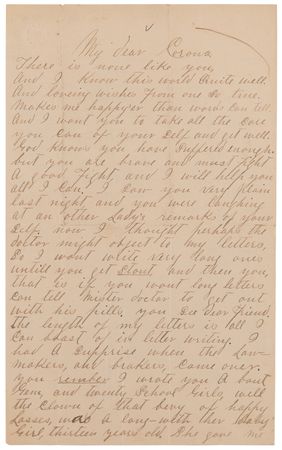 My dear Corona
There is none like you,
And I know this world Quite well.
And loveing wishes from one so true.
Makes me happyer than words can tell,
And I want you to take all the care
you can of your self and get well.
God knows you have suffered enough.
but you are brave and must fight
a good fight and I will help you
all I can. I saw you very plain
last night and you were laughing
at an other Lady's remarks of your
self, now I thought perhaps the
doctor might object to my letters,
so I wont write very long ones
untill you get stout and then you,
that is if you want long letters
can tell Mister doctor to get out
with his pills. you see dear friend.
the length of my letters is all I
can boast of in letter writing. I
had a supprise when the Law-
makers, and brakers, came over.
you rember I wrote you A bout
and twenty School Girls, well
the clown of that bevy of happy
Lasses, was a long with ther baby
Girl, thirteen years old. She gave me